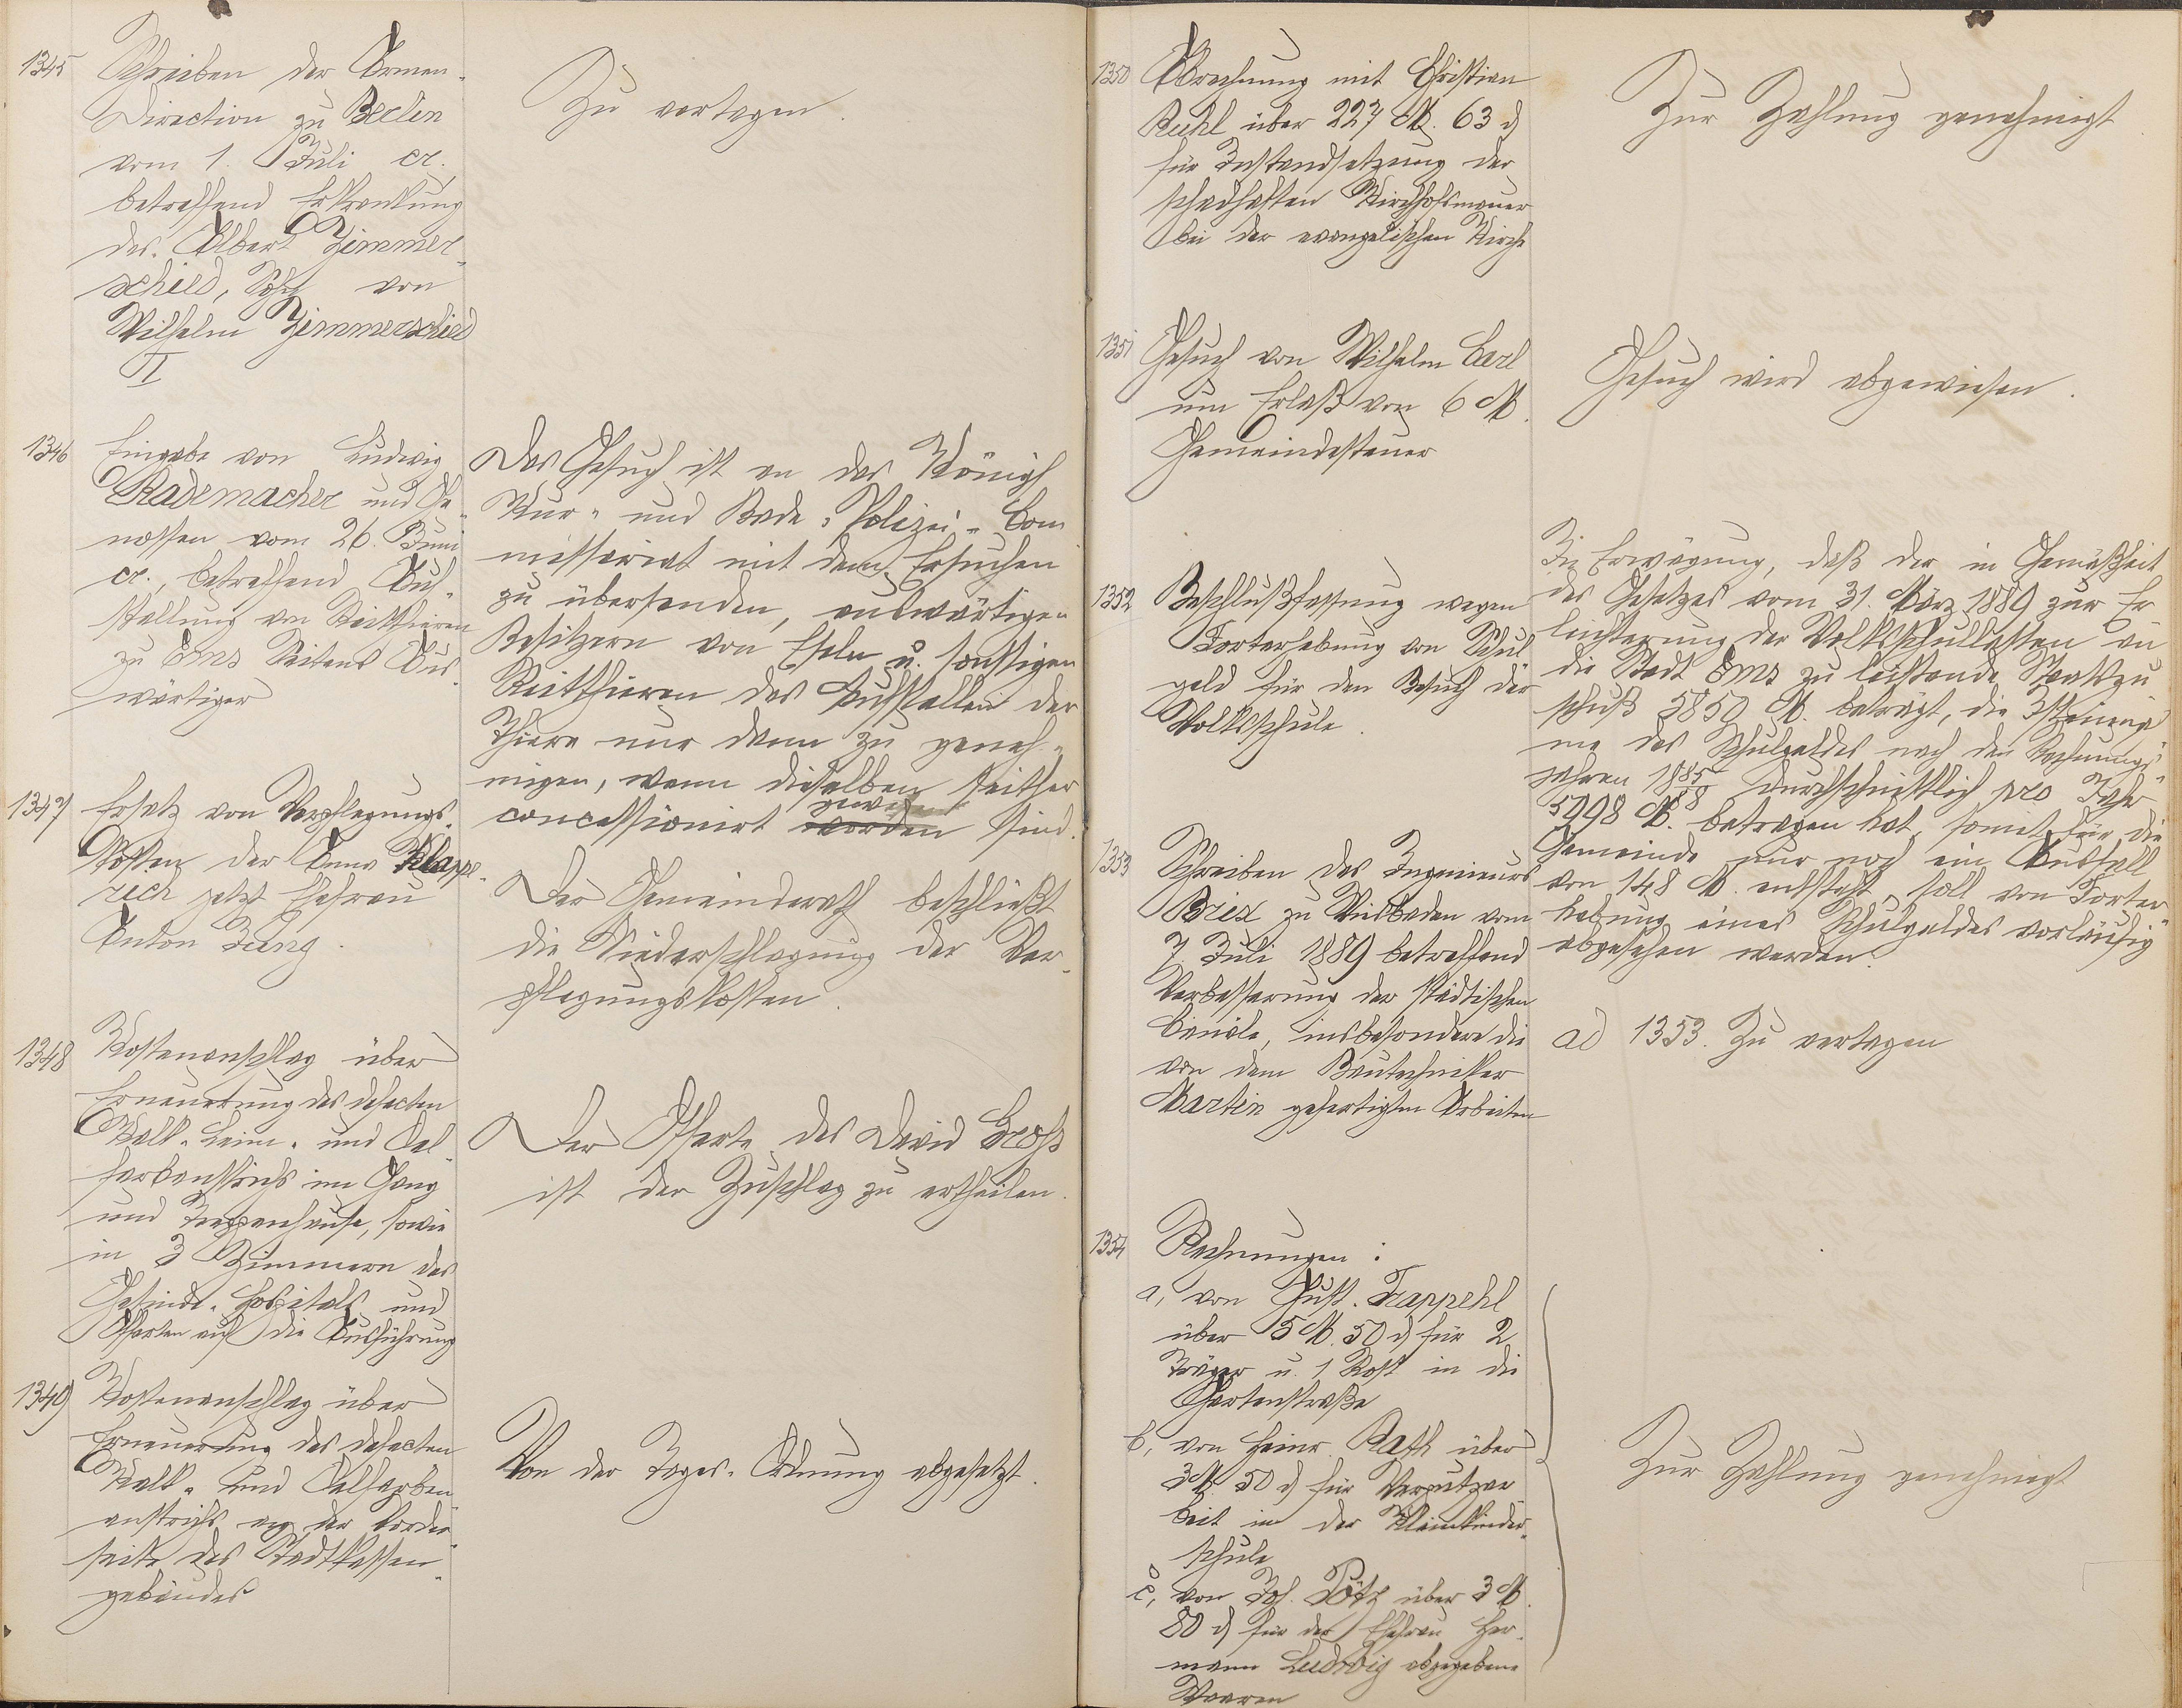 1345
Schreiben der Armen-
Direction zu Berlin
vom 1. Juli cr.
betreffend Erkrankung
des Albert Zimmer-
schied, Sohn von
Wilhelm Zimmerschied
II
Zu vertagen.
1346
Eingabe von Ludwig
Rademacher und Ge-
nossen vom 26. Juni
cr., betreffend Auf-
stellung von Reitthieren
zu Ems Seitens Aus-
wärtiger
Das Gesuch ist an das Königl
Kur- und Bade-Polizei-Com
missariat mit dem Ersuchen
zu übersenden, auswärtigen
Besitzern von Eseln u. sonstigen
Reitthieren das Aufstellen der
Thiere nur dann zu geneh-
migen, wenn dieselben seither
concessionirt worden gewesen sind.
1347
Ersatz von Verpflegungs-
kosten der Anna Klapp-
rich jetzt Ehefrau
Anton Jung.
Der Gemeinderath beschließt
die Niederschlagung der Ver-
pflegungskosten.
1348
Kostenanschlag über
Erneuerung des defecten
Kalk-Leim- und Oel-
farbanstrichs im Gang
und Treppenhause, sowie
in 3 Zimmern des
Gesinde-Hospitals und
Offerten auf die Ausführung
Der Offerte des David Groß
ist der Zuschlag zu ertheilen.
1349
Kostenanschlag über
Erneuerung des defecten
Kalk- und Oelfarben
anstrichs an der Vorder-
seite des Stadtkassen-
gebäudes
Von der Tages-Ordnung abgesetzt.
1350
Abrechnung mit Christian
Buhl über 227 M. 63 d
für Instandsetzung der
schadhaften Kirchhofsmauer
bei der evangelischen Kirche
Zur Zahlung genehmigt
1351
Gesuch von Wilhelm Carl
um Erlaß von 6 M.
Gemeindesteuer
Gesuch wird abgewiesen.
1352
Beschlußfassung wegen
Forterhebung von Schul
geld für den Besuch der
Volksschule.
In Erwägung, daß der in Gemäßheit
des Gesetzes vom 31. März 1889 zur Er
leichterung der Volksschullasten an
die Stadt Ems zu leistende Staatszu
schuß 5850 M. beträgt, die Einnah
me des Schulgeldes nach den Rechnungs-
jahren 1885/88 durchschnittlich pro Jahr
5998 M. betragen hat, somit für die
Gemeinde nur noch ein Ausfall
von 148 M. entsteht, soll von Forter-
hebung eines Schulgeldes vorläufig
abgesehen werden.
1353
Schreiben des Ingenieurs
Brix zu Wiesbaden vom
7. Juli 1889 betreffend
Verbesserung der städtischen
Canäle, insbesondere die
von dem Bautechniker
Martin gefertigten Arbeiten
ad 1353. Zu vertagen
1354
Rechnungen:
a, von Gust. Trappehl
über 5 M. 50 d für 2
Träger u. 1 Rost in die
Gartenstraße
b, von Heinr. Rath über
3 M. 50 d für Verputzar
beit in der Kleinkinder-
schule
c, von Jos. Pötz über 3 M.
80 d für der Ehefrau Her-
mann Ludwig abgegebene
Waaren
Zur Zahlung genehmigt